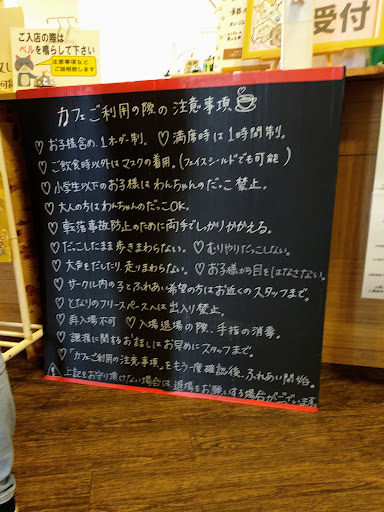 ご入店の際は
ベルを鳴らして下さい
注意事項など
ご説明致します
受付
カフェご利用の際の注意事項
♡ お子様含め、1オーダー制。 ♡ 満席時は1時間制。
♡ ご飲食時以外はマスクの着用。(フェイスシールドでも可能)
♡ 小学生以下のお子様はわんちゃんのだっこ禁止。
♡ 大人の方はわんちゃんのだっこOK。
♡ 転落事故防止のために両手でしっかりかかえる。
♡ だっこしたまま歩きまわらない。 ♡ むりやりだっこしない。
♡ 大声をだしたり、走りまわらない。 ♡ お子様から目をはなさない。
♡ サークル内の子とふれあい希望の方はお近くのスタッフまで。
♡ となりのフリースペースへは出入り禁止。
♡ 再入場不可 ♡ 入場退場の際、手指の消毒。
♡ 譲渡に関するお話しはお早めにスタッフまで。
♡「カフェご利用の注意事項」をもう一度確認後、ふれあい開始。
上記をお守り頂けない場合は、退場をお願いする場合がございます。